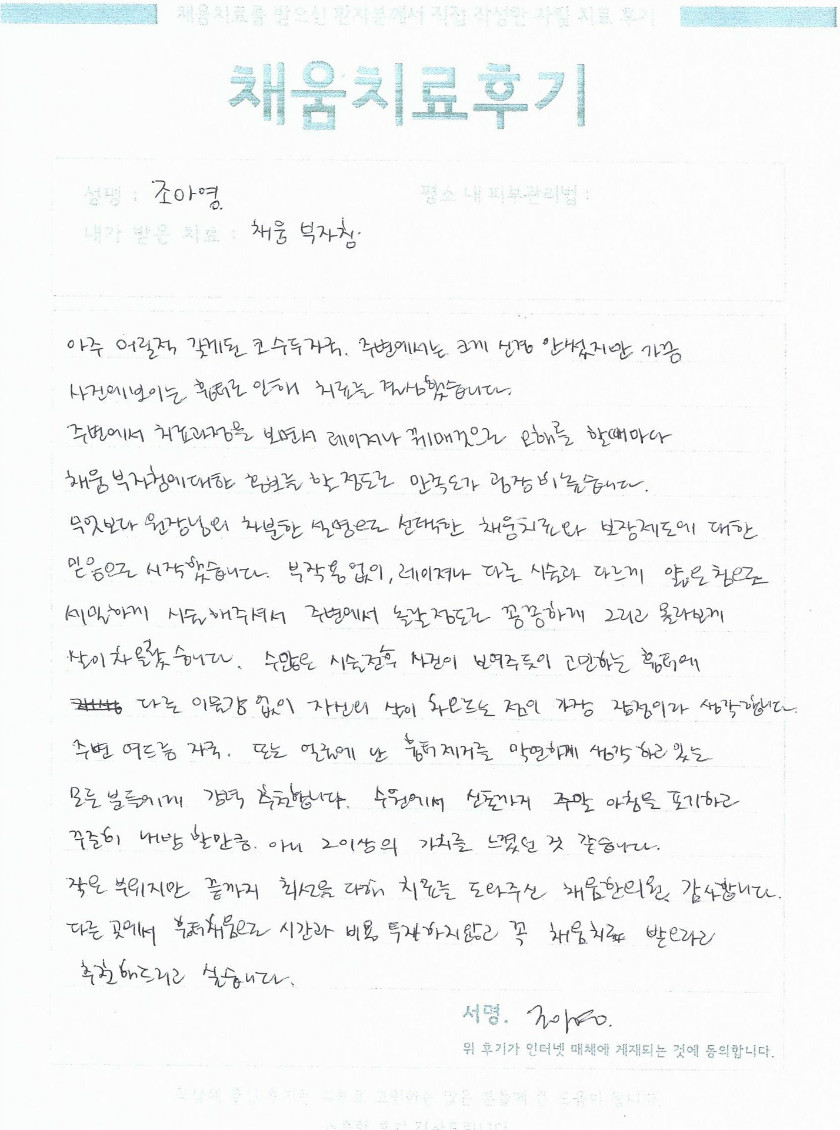 채움치료를 받으신 환자분께서 직접 작성한 자필 치료 후기
채움치료후기
성명 : 조아영
평소 내 피부관리법 :
내가 받은 치료 : 채움 부자침.
아주 어릴적 갖게된 코 수두자국. 주변에서는 크게 신경 안썼지만 가끔
사진에 보이는 흉터로 인해 치료를 결심했습니다.
주변에서 치료과정을 보면서 레이저나 꿰매것으로 오해를 할때마다
채움 부자침에 대한 홍보를 할 정도로 만족도가 굉장히 높습니다.
무엇보다 원장님의 차분한 설명으로 선택한 채움치료와 보장제도에 대한
믿음으로 시작했습니다. 부작용 없이, 레이저나 다른 시술과 다르게 얇은 침으로
세밀하게 시술해주셔서 주변에서 놀랄정도로 꼼꼼하게 그리고 몰라보게
살이 차올랐습니다. 수많은 시술전후 사진이 보여주듯이 고민하는 흉터에
다른 이물감 없이 자신의 살이 차오르는 점이 가장 장점이라 생각합니다.
주변 여드름 자국. 또는 얼굴에 난 흉터제거를 막연하게 생각하고 있는
모든 분들에게 강력 추천합니다. 수원에서 신촌까지 주말 아침을 포기하고
꾸준히 내방 할만큼. 아니 그 이상의 가치를 느꼈던 것 같습니다.
작은 부위지만 끝까지 최선을 다해 치료를 도와주신 채움한의원, 감사합니다.
다른 곳에서 흉터채움으로 시간과 비용 투자하지않고 꼭 채움치료 받으라고
추천해드리고 싶습니다.
서명. 조아영.
위 후기가 인터넷 매체에 게재되는 것에 동의합니다.